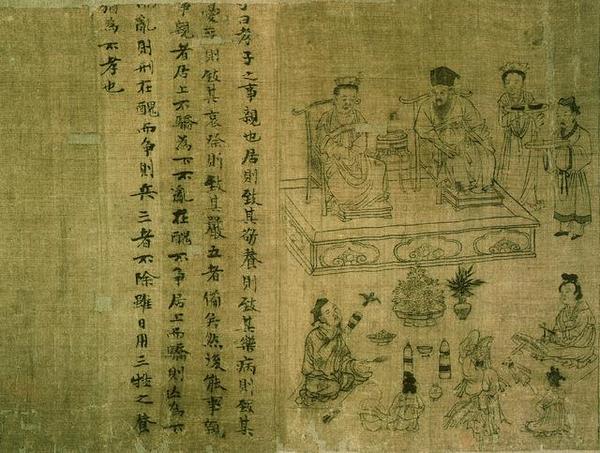 子曰孝子之事親也居則致其敬養則致其樂病則致其
憂喪則致其哀祭則致其嚴五者備矣然後能事親
事親者居上不驕為下不亂在醜不争居上而驕則亡為下
而亂則刑在醜而争則兵三者不除雖日用三牲之養
猶為不孝也